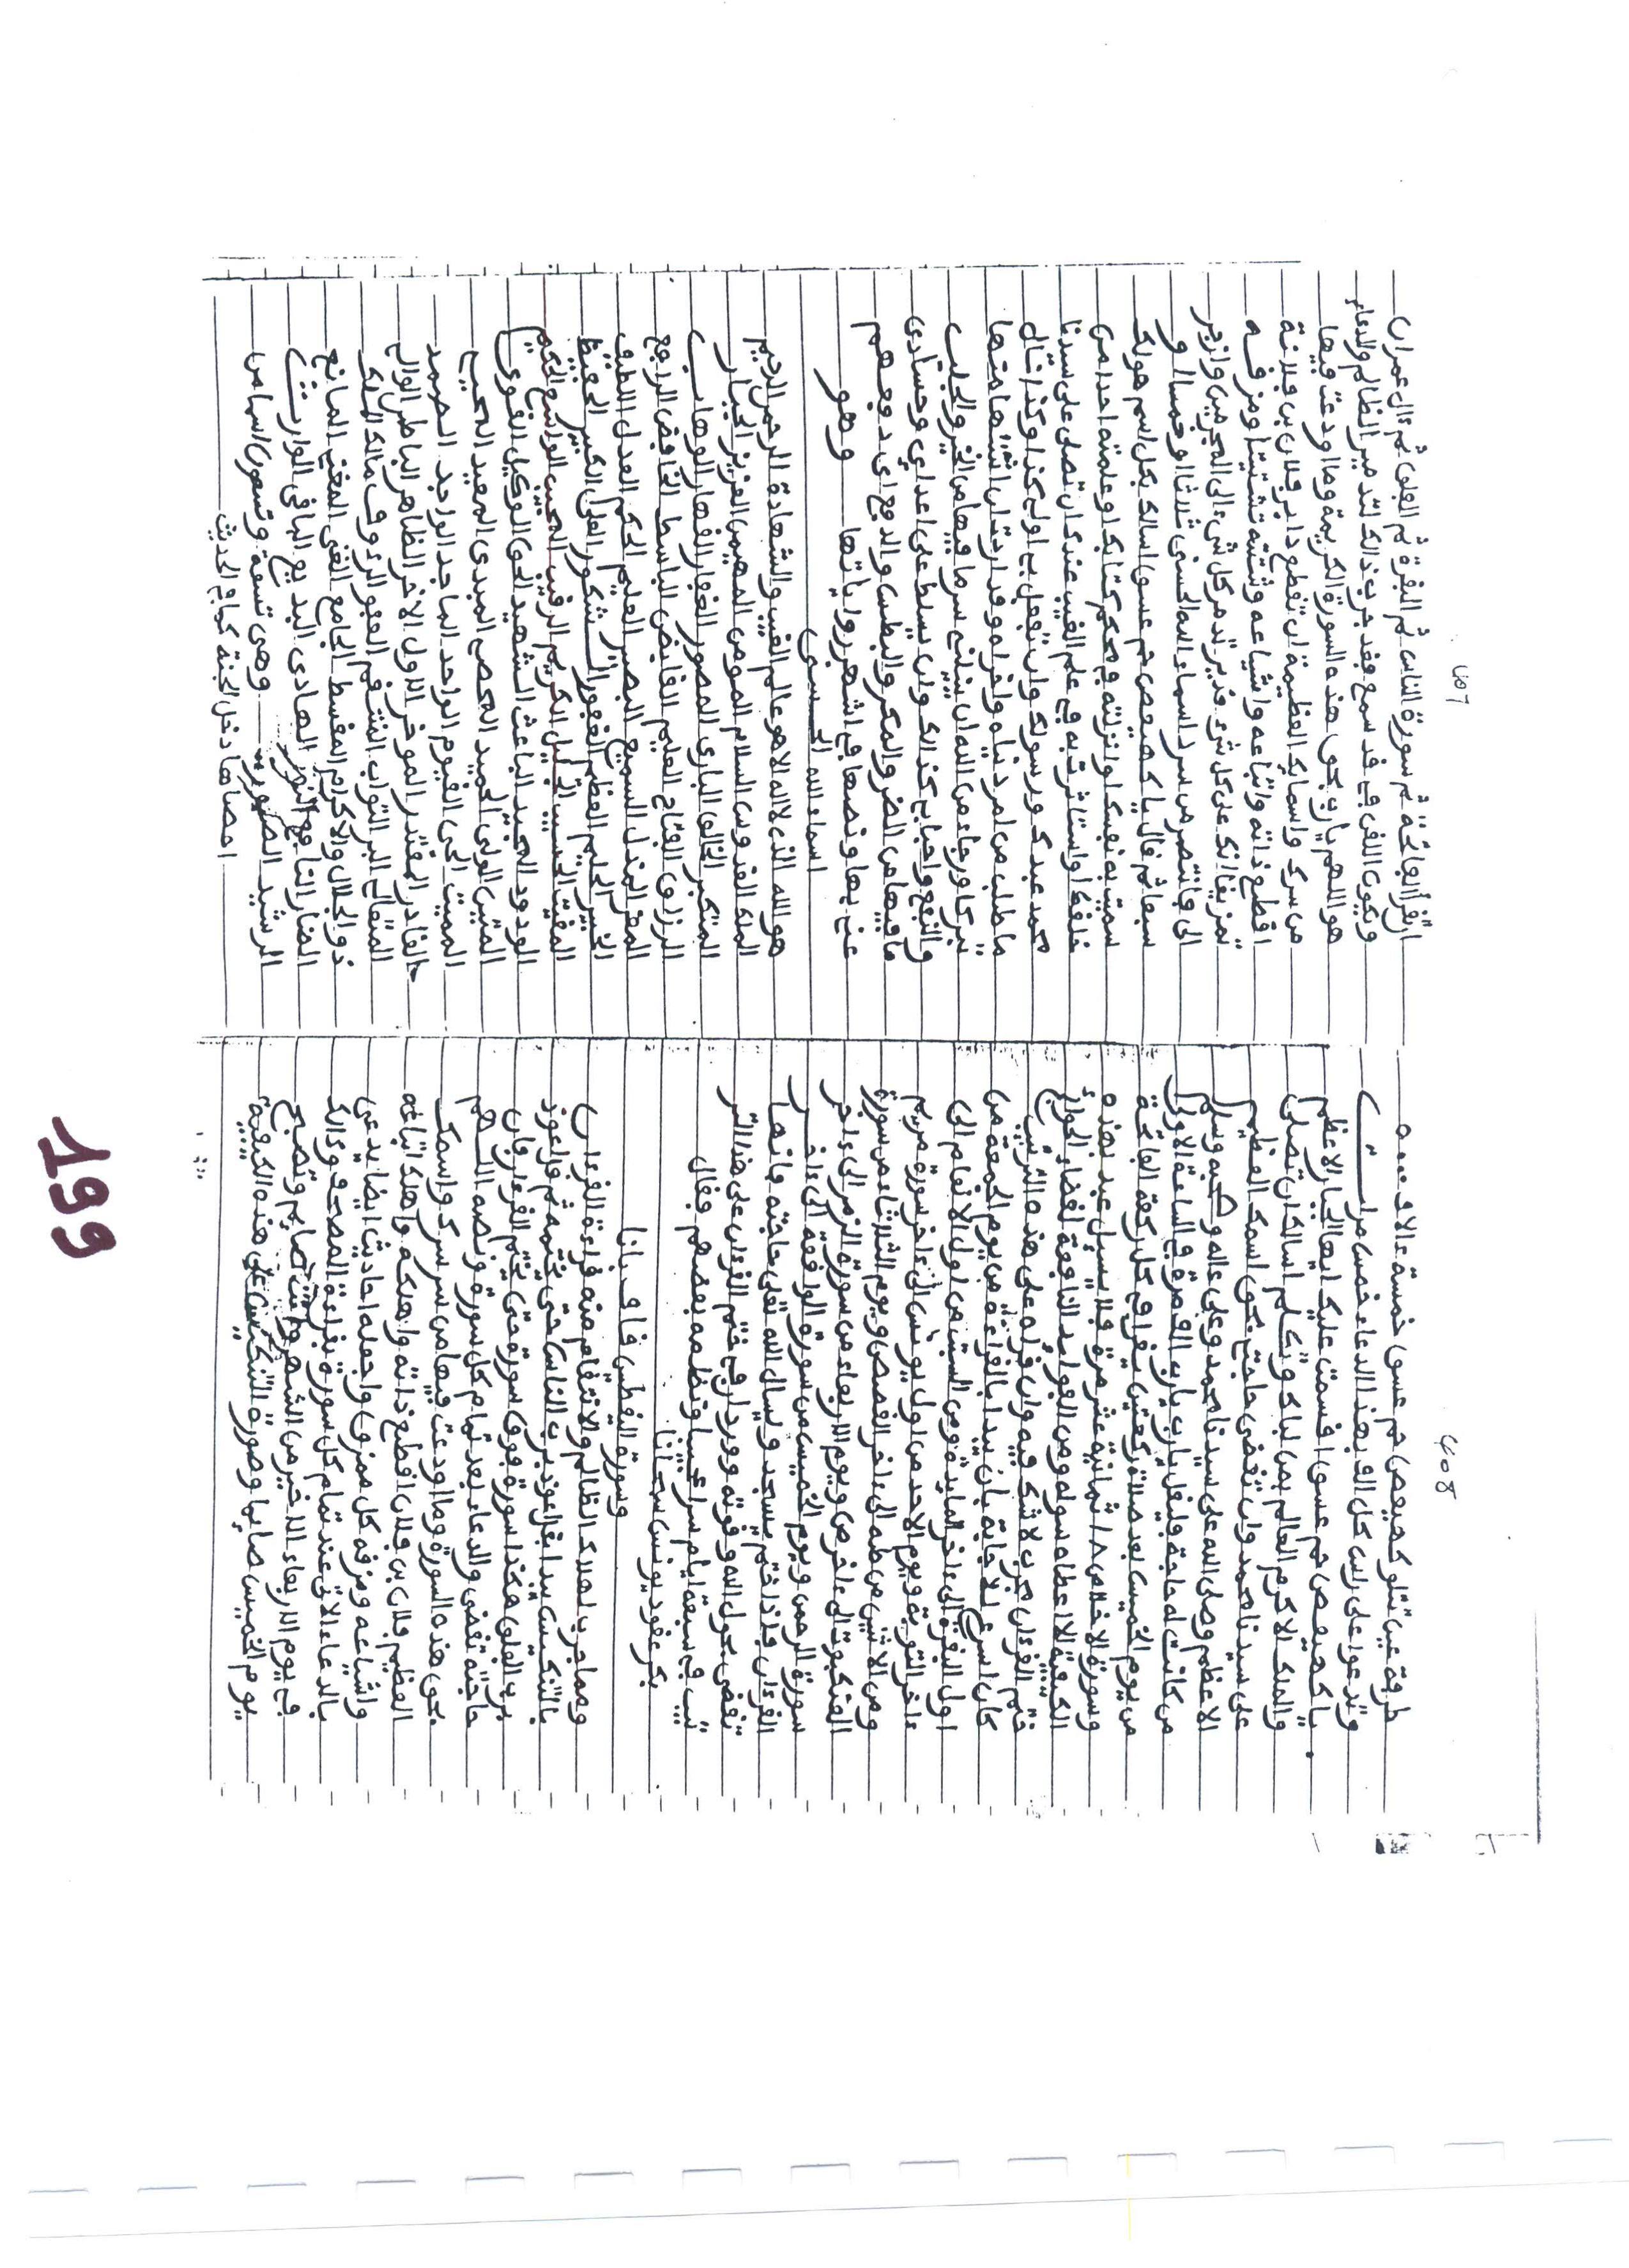 408
طرفة عين تتلو كهيعص حم عسق خمسة ءالاف
وتدعوا على راس كل الف بهذا الدعاء خمس مرات
يا كهيعص حم عسق اقسمت عليك ايها الجبار الاعظم
والملك الاكرم العالم بمن ناداك وتكلم اسالك ان تصلى
على سيدنا محمد وان تقضى حاجتى بحق اسمك العظيم
الاعظم وصلى الله على سيدنا محمد وعلى ءاله وصحبه وسلم
من كانت له حاجة
من يوم الخميس بعد صلاة ركعتين يقرا فى كل ركعة الفاتحة
وسورة الاخلاص ١٨ ثمانية عشر مرة فلا يسئل عبد بهذه
الكيفية الا اعطاه سوله ومن الفوايد النافعة لقضاء الحوائج
ختم القرءان مجرب لا شك فيه وان قراه على هذه الترتيب
كان اسرع للاجابة بان يبدا بالقراءة من يوم الجمعة من
اول البقرة الى ءاخر المايدة ومن السبت من اول الانعام الى
ءاخر التوبة ويوم الاحد من اول يونس الى ءاخر سورة مريم
ومن الاثنين من طه الى ءاخر القصص ويوم الثلاثاء من سورة
العنكبوت الى ءاخر ص ويوم الاربعاء من سورة الزمر الى ءاخر
سورة الرحمن ويوم الخميس من سورة الواقعة الى ءاخر
القرءان فاذا ختم يسجد ويسال الله تعلى حاجته فانها
تقضى بحول الله وقوته وورد ان فى ختم القرءان على هذا التر
تيب فى سبعة ايام سرا عجيبا ونظمه بعضهم فقال
بكر عقود يونس سبحانا
وسورة القصص قاف بانا
ومما جرب لهلاك الظالم والانتقام منه قراءة القرءان
بالتنكيس يبدا بقل اعوذ برب الناس حتى يختمه ثم قل اعوذ
برب الفلق هكذا سورة فوق سورة حتى يختم القرءان فان
حاجته تقضى والدعاء بعد تمام كل سورة ونصه اللهم
بحق هذه السورة وما اودعت فيها من سر سرك واسمك
العظيم فلان بن فلان اقطع ذاته واهلكه واهلك اتباعه
واشياعه ومزقه كل ممزق واجعله احاديث ايضا يدعى
بالدعاء الاتى عند تمام كل سورة بقراءة المصحف وذالك
فى يوم الاربعاء الاخير من الشهر وانت صايم وتصبح
يوم الخميس صايما وصورة التنكيس على هذه الكيفية
407
ان تقرأ الفاتحة ثم سورة الناس ثم الفلق ثم البقرة ثم ءال عمران
هو اللهم يارب بحق هذه السورة الكريمة وما اودعت فيها
من سرك واسمايك العظيمة ان تقطع دابر فلان بن فلانة
اقطع ذاته واتباعه واشياعه وشتته تشتيتا ومزقه
تمزيقا انك على كل شىء قدير
سبعا ثم قال يا كهيعص حم عسق اسالك بكل اسم هولك
سميت به نفسك او انزلته فى محكم كتابك او علمته احدا من
خلقك او استاثرت به فى علم الغيب عندك ان تصلى على سيدنا
محمد عبدك ورسولك وان تفعل بى او لى كذا وكذا تنال
ما طلبت من امر دنياه واخراه
والنفع واحبابى كذالك وان يسلط على اعداى وحسادى
ما فيها من الضر والمكر والبطش والدفع
اسماء الله الحسنى وهو
هو الله الذى لا اله الا هو عالم الغيب والشهادة الرحمن الرحيم
الملك القدوس السلام المومن المهيمن العزيز الجبار
المتكبر الخالق البارى المصور الغفار القهار الوهاب
الرزاق الفتاح العليم القابض الباسط الخافض الرافع
المعز المذل السميع البصير الحكم العدل اللطيف
الخبير الحليم العظيم الغفور الشكور العلى الكبير الحفيظ
المقيت الحسيب الجليل الكريم الرقيب المجيب الواسع الحكيم
الودود المجيد الباعث الشهيد الحق الوكيل القوى
المتين الولى الحميد المحصى المبدى المعيد المحيى
المميت الحى القيوم الواحد الماجد الواجد الصمد
القادر المقتدر المقدم الموخر الاول الاخر الظاهر الباطن الوال
المتعالى البر التواب المنتقم العفو الرءوف مالك الملك
ذو الجلال والاكرام المقسط الجامع الغنى المغنى المانع
الضار النافع النور الهادى البديع الباقى الوارث
الرشيد الصبور وهى تسعة وتسعون اسما من
احصاها دخل الجنة كما فى الحديث
199